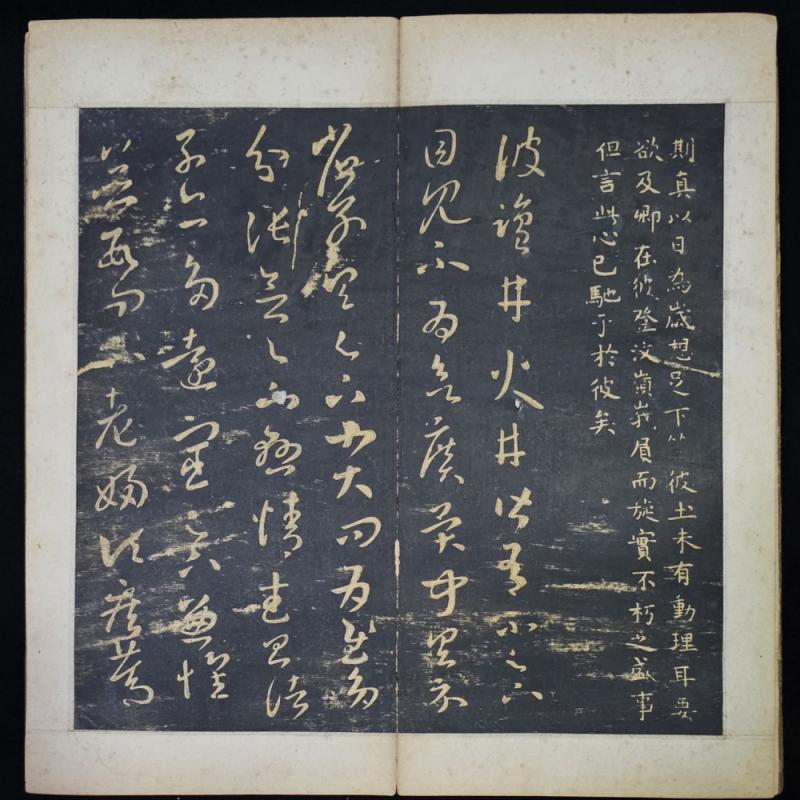 期真以日為歲想足下鎮彼土未有動理耳要
欲及卿在彼登汶嶺峨眉而旋實不朽之盛事
但言此心已馳于於彼矣
彼鹽井火井皆有不足下
目見不為欲廣異聞具示
省別具足下小大問為慰多
分張念足下懸情武昌諸
子亦多遠宦足下兼懷
並數問不老婦頃疾篤